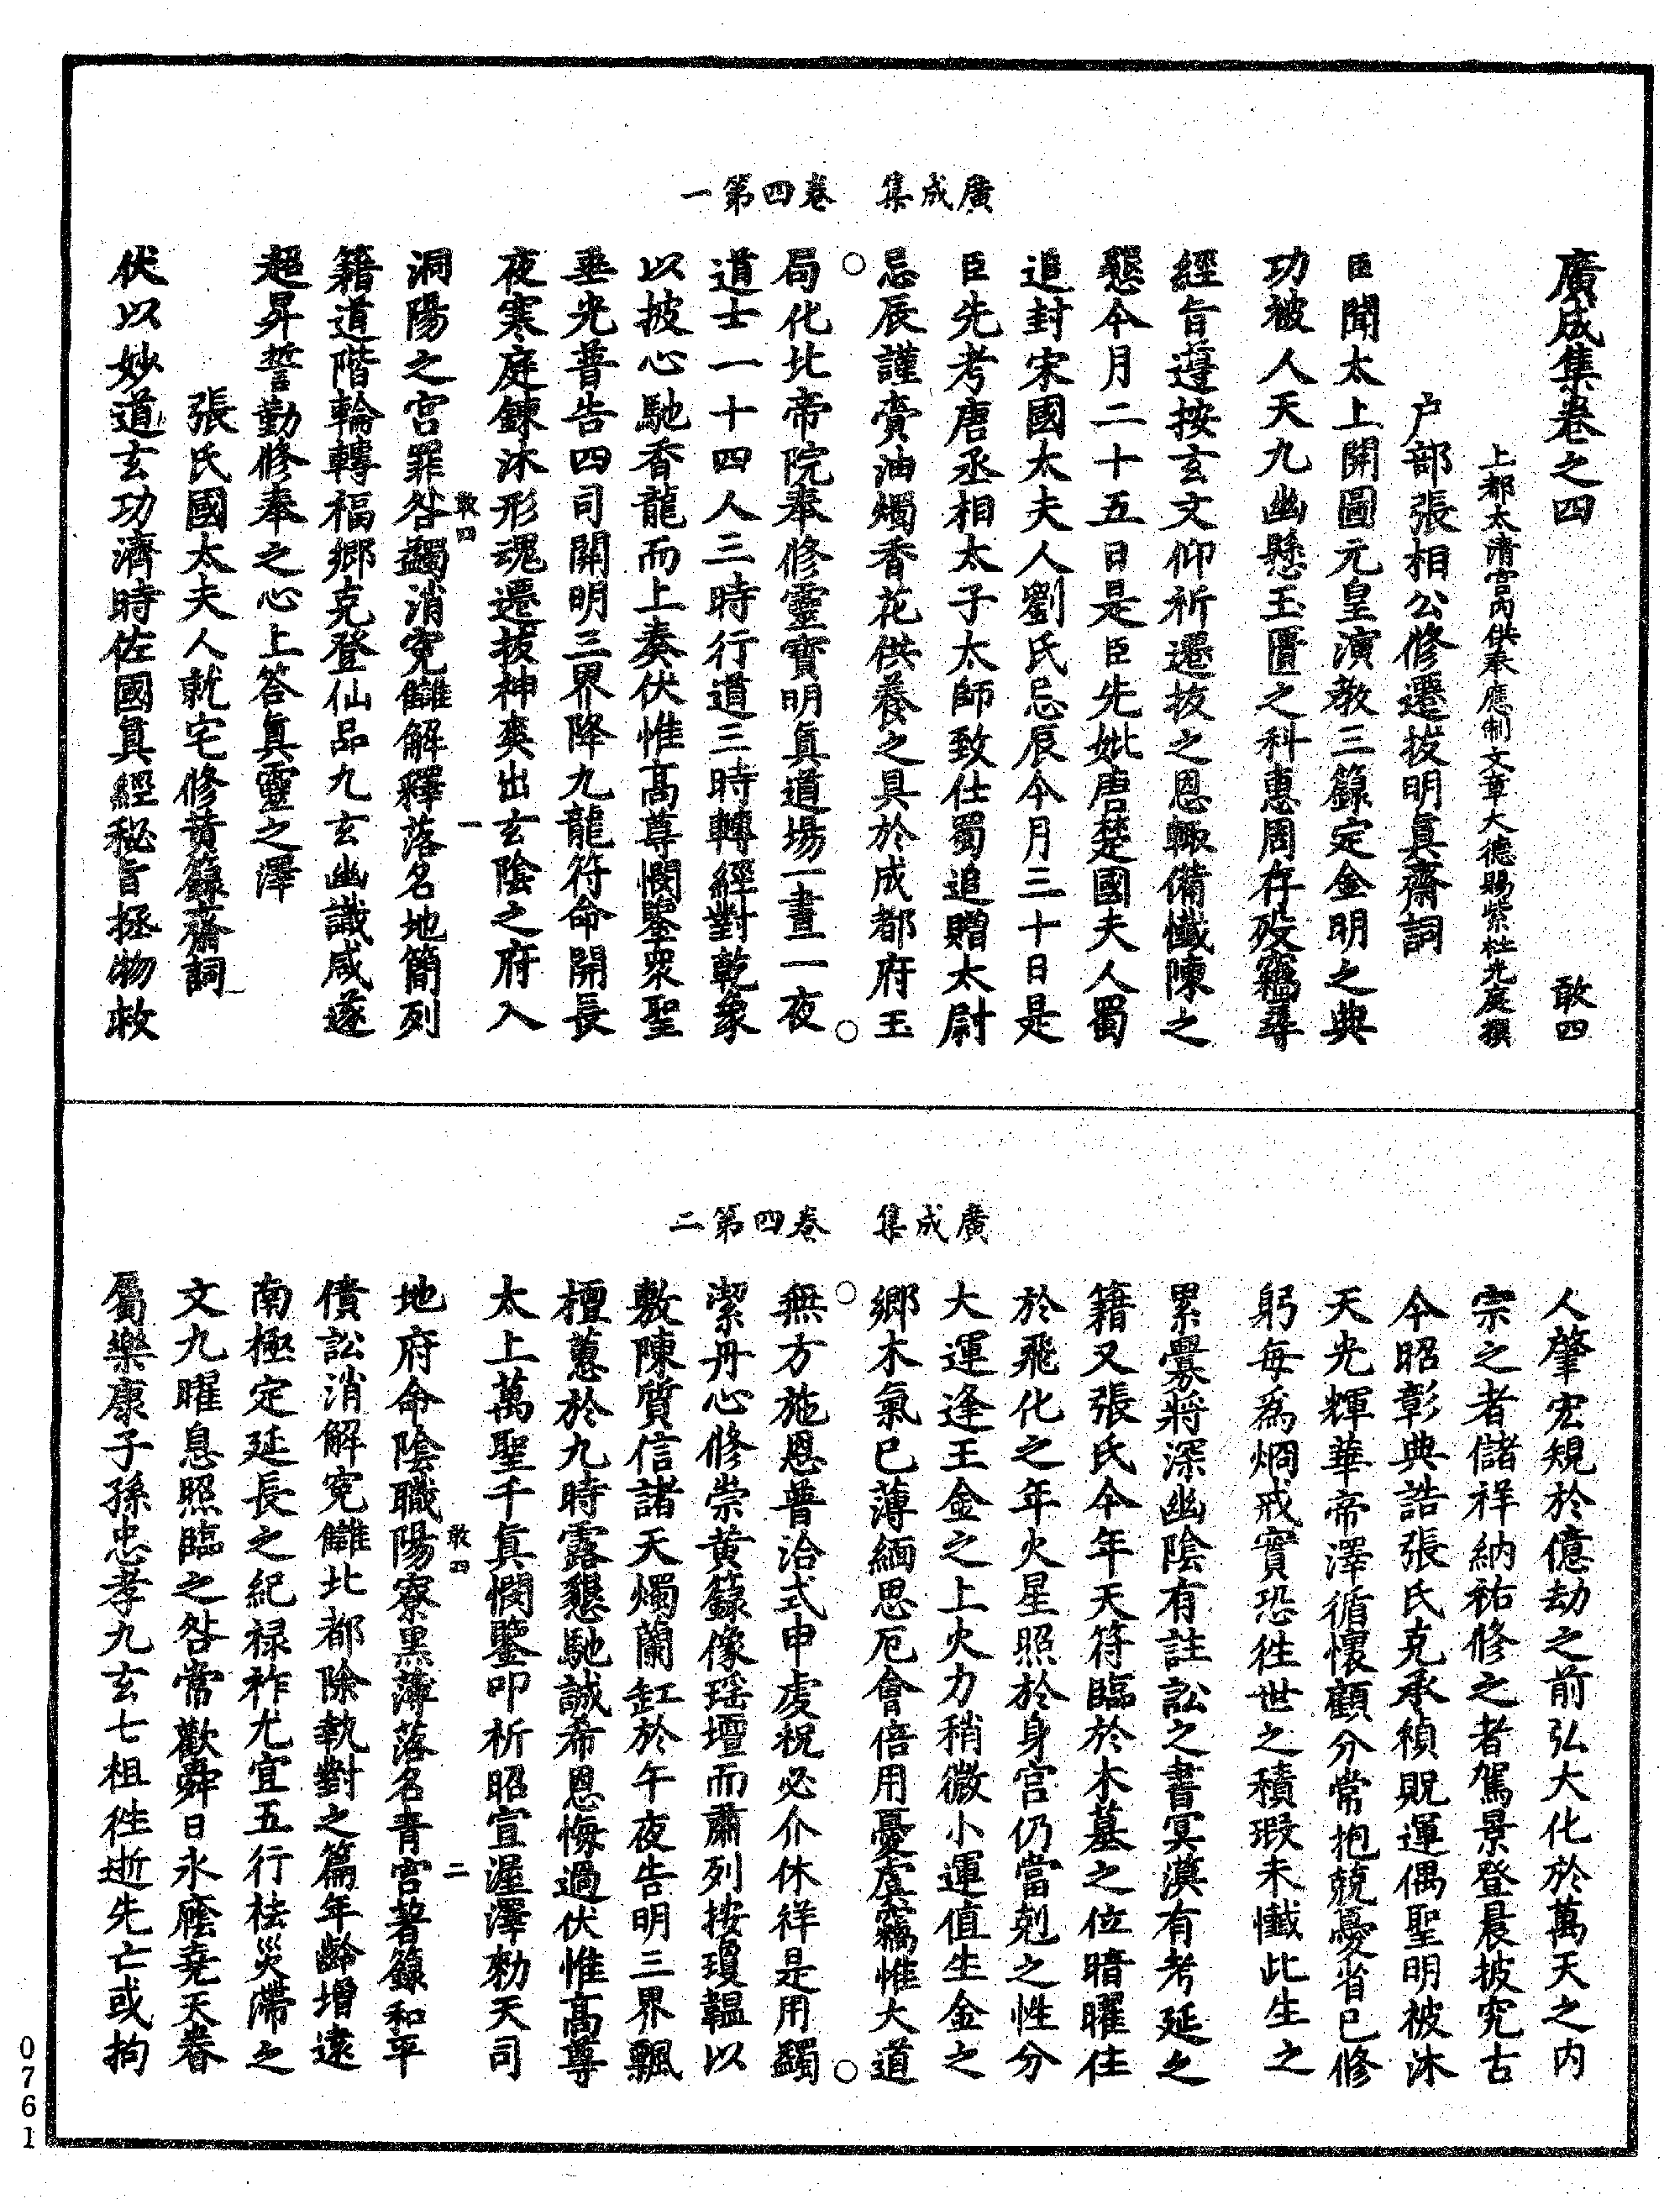 廣成集　卷四第一
廣成集卷之四　敢四
上都太清宮內供奉應制文章大德賜紫杜光庭撰
戶部張相公修遷拔明真齋詞
臣聞太上開圖元皇演教三籙定金明之典
功被人天九幽懸玉匱之科惠周存歿竊尋
經旨遵按玄文仰祈遷拔之恩輙備懺陳之
懇今月二十五日是臣先妣唐楚國夫人蜀
追封宋國太夫人劉氏忌辰今月三十日是
臣先考唐丞相太子太師致仕蜀追贈太尉
忌辰謹賫油燭香花供養之具於成都府玉
局化北帝院奉修靈寶明真道場一晝一夜
道士一十四人三時行道三時轉經對乾象
以披心馳香龍而上奏伏惟高尊憫鑒衆聖
垂光普告四司開明三界降九龍符命開長
夜寒庭鍊沐形魂遷拔神爽出玄陰之府入
敢四　一
洞陽之宮罪咎蠲消寃讎解釋落名地簡列
籍道階輪轉福鄉克登仙品九玄幽識咸遂
超昇誓勤修奉之心上答真靈之澤
張氏國太夫人就宅修黃籙齋詞
伏以妙道玄功濟時佐國真經秘旨拯物救
廣成集　卷四第二
人肇宏規於億劫之前弘大化於萬天之內
宗之者儲祥納祐修之者駕景登晨披究古
今昭彰典誥張氏克承禎貺運偶聖明被沐
天光輝華帝澤循懷顧分常抱兢憂省已修
躬每為炯戒實恐徃世之積瑕未懺此生之
累釁將深幽陰有註訟之書冥漠有考延之
籍又張氏今年天符臨於木墓之位暗曜住
於飛化之年火星照於身宮仍當剋之性分
大運逢王金之上火力稍微小運值生金之
鄉木氣已薄緬思厄會倍用憂虞竊惟大道
無方施恩普洽式申虔祝必介休祥是用蠲
潔丹心修崇黃籙像瑤壇而肅列按瓊韞以
敷陳質信諸天燭蘭缸於午夜告明三界飄
檀蕙於九時露懇馳誠希恩悔過伏惟高尊
太上萬聖千真憫鑒叩祈昭宣渥澤勑天司
敢四　二
地府命陰職陽寮黑薄落名青宮著籙和平
債訟消解寃讎北都除執對之篇年齡增遠
南極定延長之紀祿祚尤宜五行祛災滯之
文九曜息照臨之咎常歡舜日永廕堯天眷
屬樂康子孫忠孝九玄七祖徃逝先亡或拘
0761